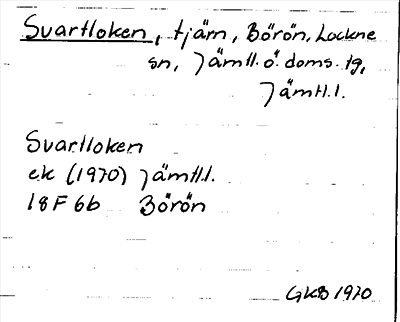 Svartloken, tjärn, Börön, Lockne
sn, Jämtl. ö. doms. tg,
Jämtl. l.
Svartloken
ek (1970) Jämtl.l.
18F 6b Börön
GKB 1970